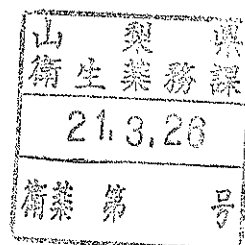 山梨県
衛生薬務課
21.3.26
衛薬第 号